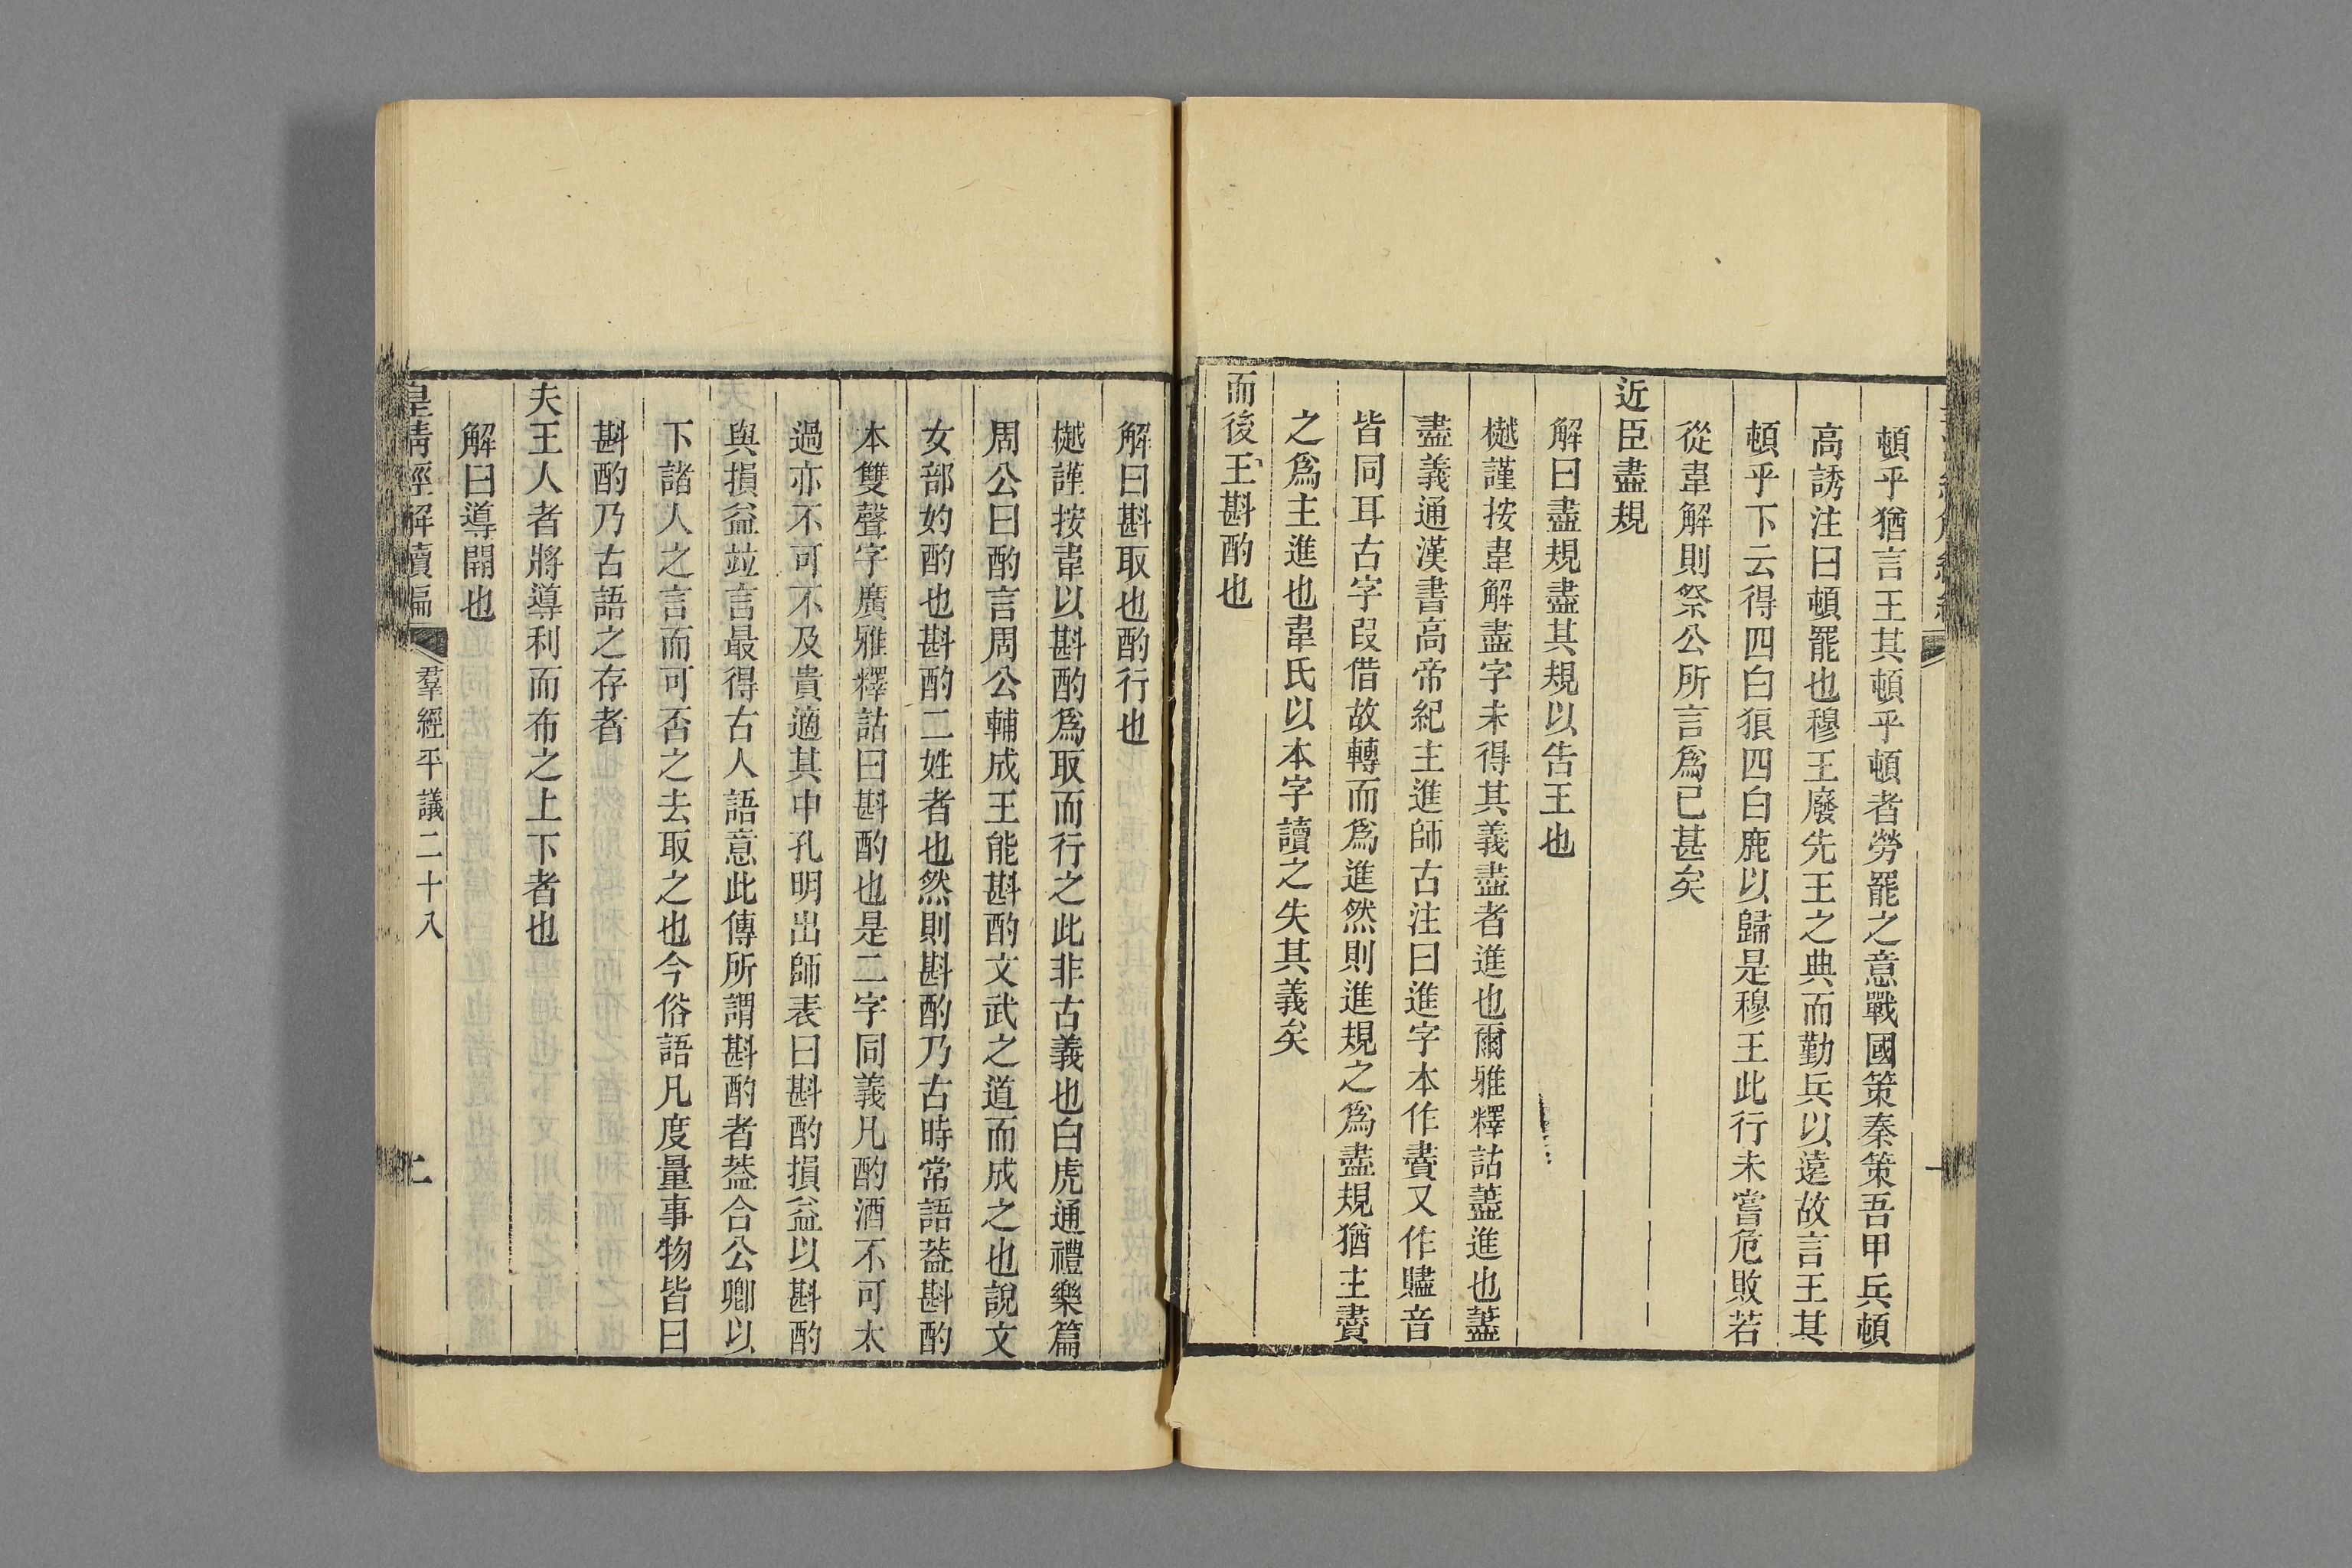 頓乎猶言王其頓乎頓者勞罷之意戰國策秦策吾甲兵頓
高誘注曰頓罷也穆王廢先王之典而勤兵以遠故言王其
頓乎下云得四白狼四白鹿以歸是穆王此行未嘗危敗若
從韋解則祭公所言爲已甚矣
近臣盡規
解曰盡規盡其規以告王也
樾謹按韋解盡字未得其義盡者進也爾雅釋詁藎進也藎
盡義通漢書高帝紀主進師古注曰進字本作賮又作贐音
皆同耳古字叚借故轉而爲進然則進規之爲盡規猶主賮
之爲主進也韋氏以本字讀之失其義矣
而後王斟酌也
解曰斟取也酌行也
樾謹按韋以斟酌爲取而行之此非古義也白虎通禮樂篇
周公曰酌言周公輔成王能斟酌文武之道而成之也說文
女部妁酌也斟酌二姓者也然則斟酌乃古時常語葢斟酌
本雙聲字廣雅釋詁曰斟酌也是二字同義凡酌酒不可太
過亦不可不及貴適其中孔明出師表曰斟酌損益以斟酌
與損益竝言最得古人語意此傳所謂斟酌者葢合公卿以
下諸人之言而可否之去取之也今俗語凡度量事物皆曰
斟酌乃古語之存者
夫王人者將導利而布之上下者也
解曰導開也
皇清經解續編
羣經平議二十八
二